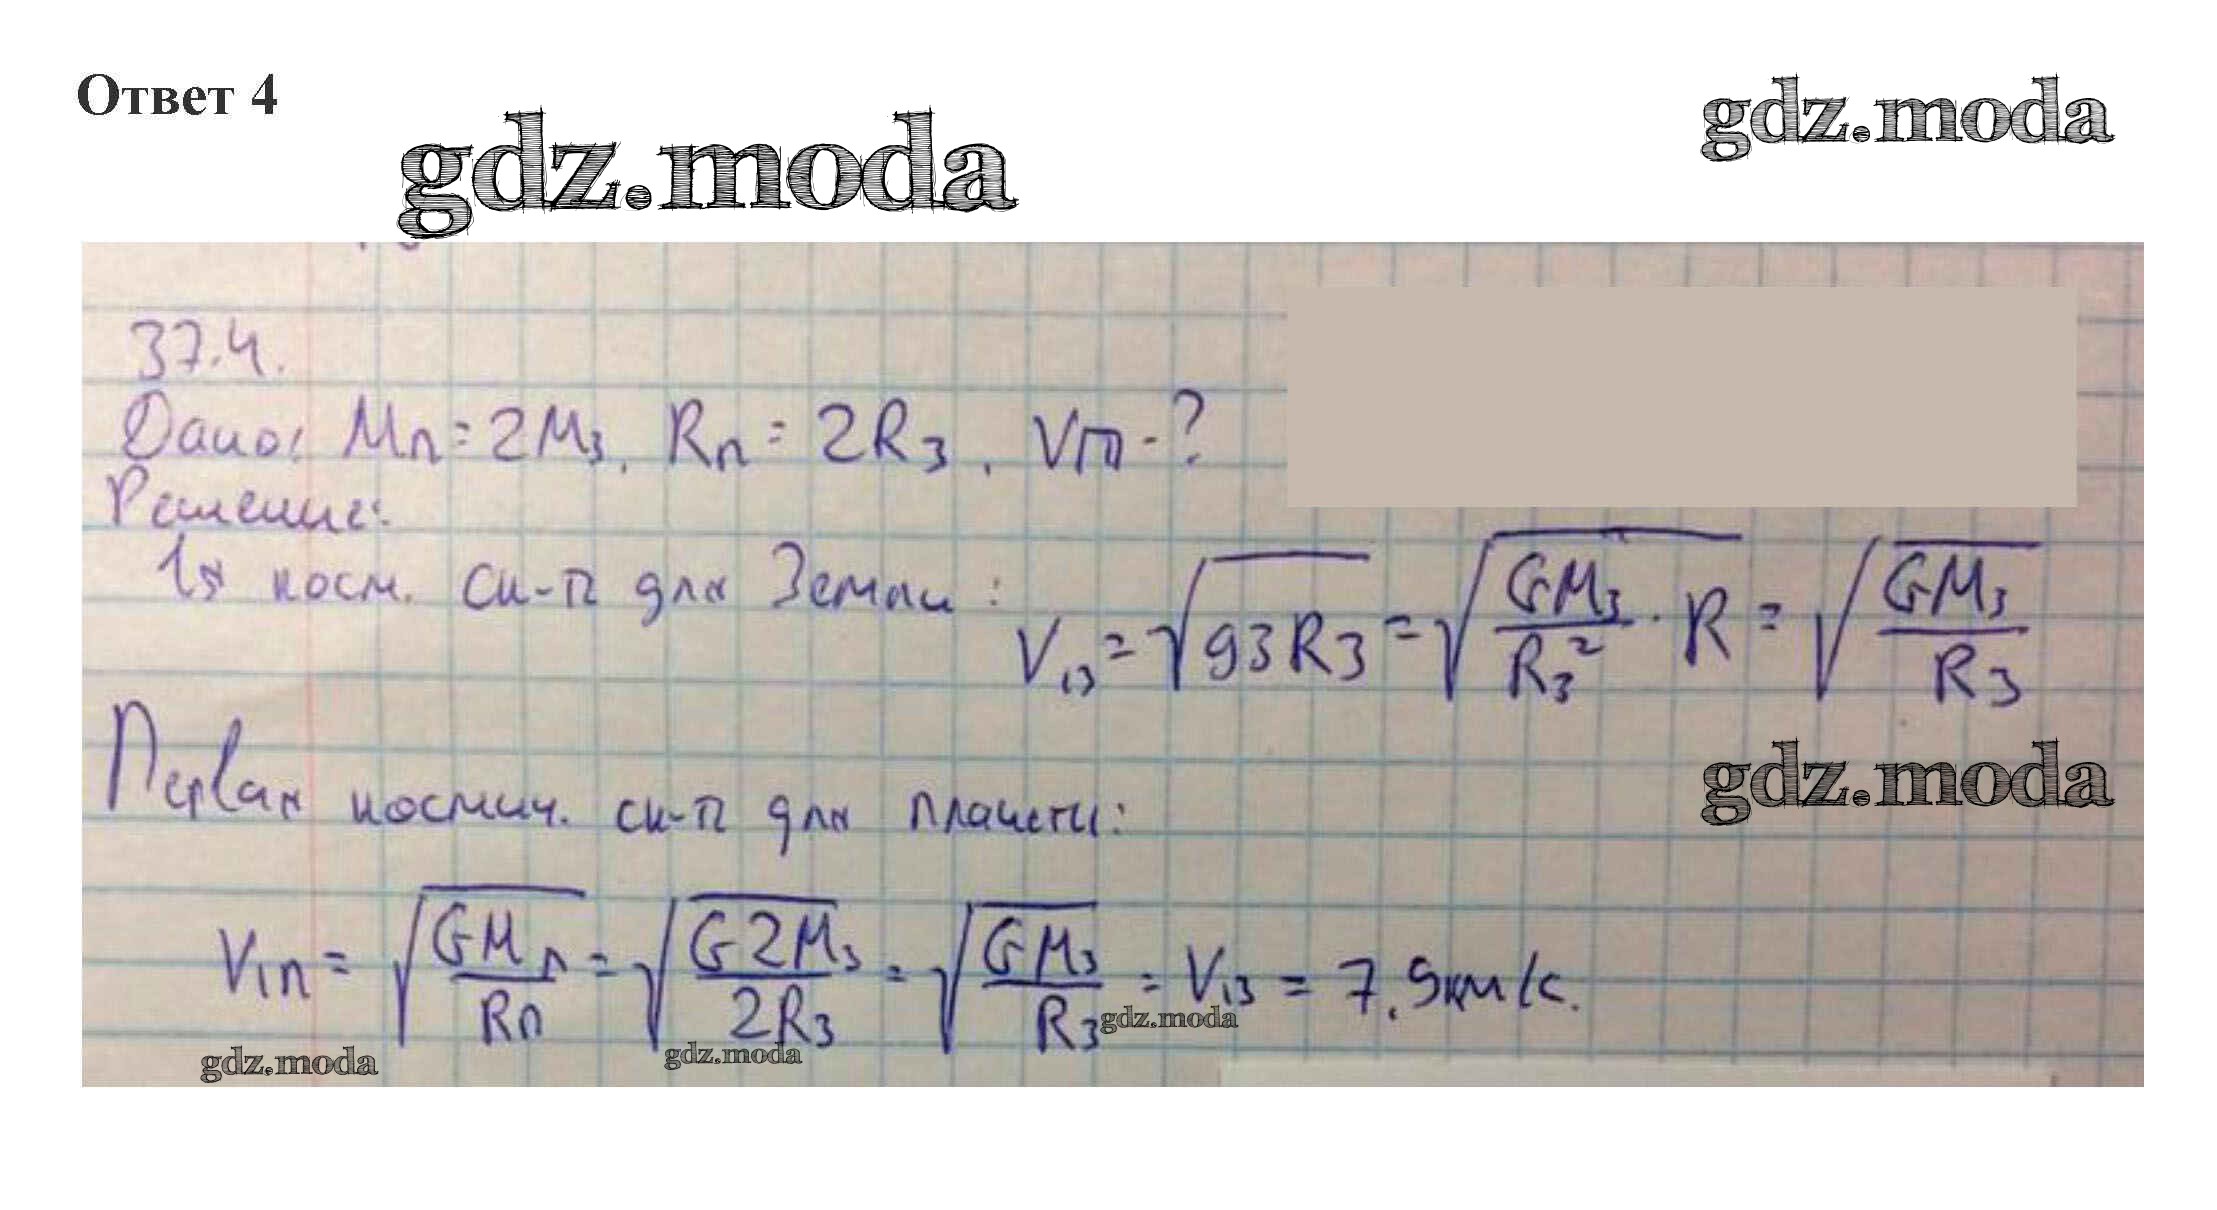 Ответ 4
gdz.moda
gdz.moda
37.4.
Дано: Mп = 2Mз, Rп = 2Rз, Vп - ?
Решение:
1я косм. ск-п для Земли: V₁з = √(gзRз) = √(GMз/Rз² · R) = √(GMз/Rз)
gdz.moda
Первая космич. ск-п для планеты:
V₁п = √(GMп/Rп) = √(G2Mз/2Rз) = √(GMз/Rз) = V₁з = 7.9км/с.
gdz.moda
gdz.moda
gdz.moda